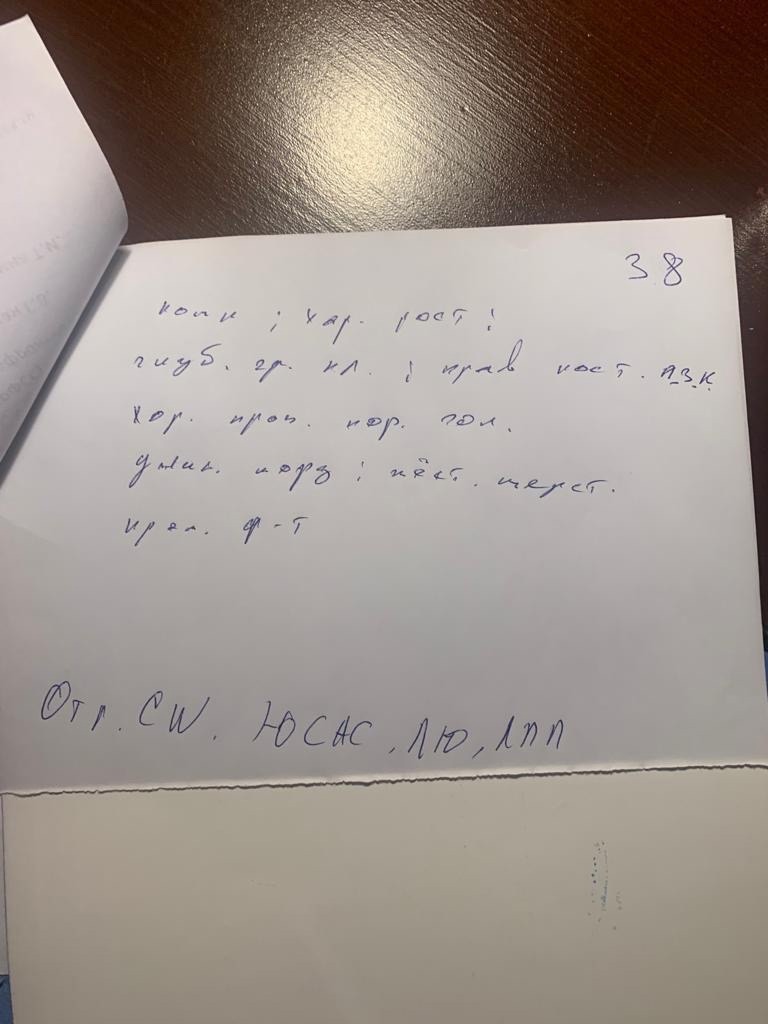 38
комп ; хар. рост ;
глуб. гр. кл. ; прав пост. п.з.к.
хор. проп. кор. гол.
удлин. корп ; жёст. шерст.
крас. ф-т
Отл. CW. ЮСАС, ЛЮ, ЛПП